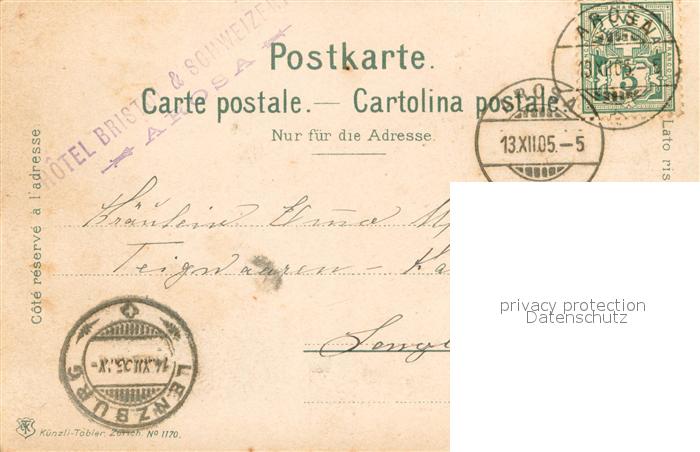 HÔTEL BRISTOL & SCHWEIZER
AROSA
Postkarte.
Carte postale. — Cartolina postale.
Nur für die Adresse.
Côté réservé à l'adresse.
Lato ris
AROSA
13.XII.05.-5
AROSA
13.XII.05.-5
5
Fräulein Emma
Teigwaaren-
privacy protection
Datenschutz
LENZBURG
14.XII.05.IX-
Künzli-Tobler, Zürich. No 1170.